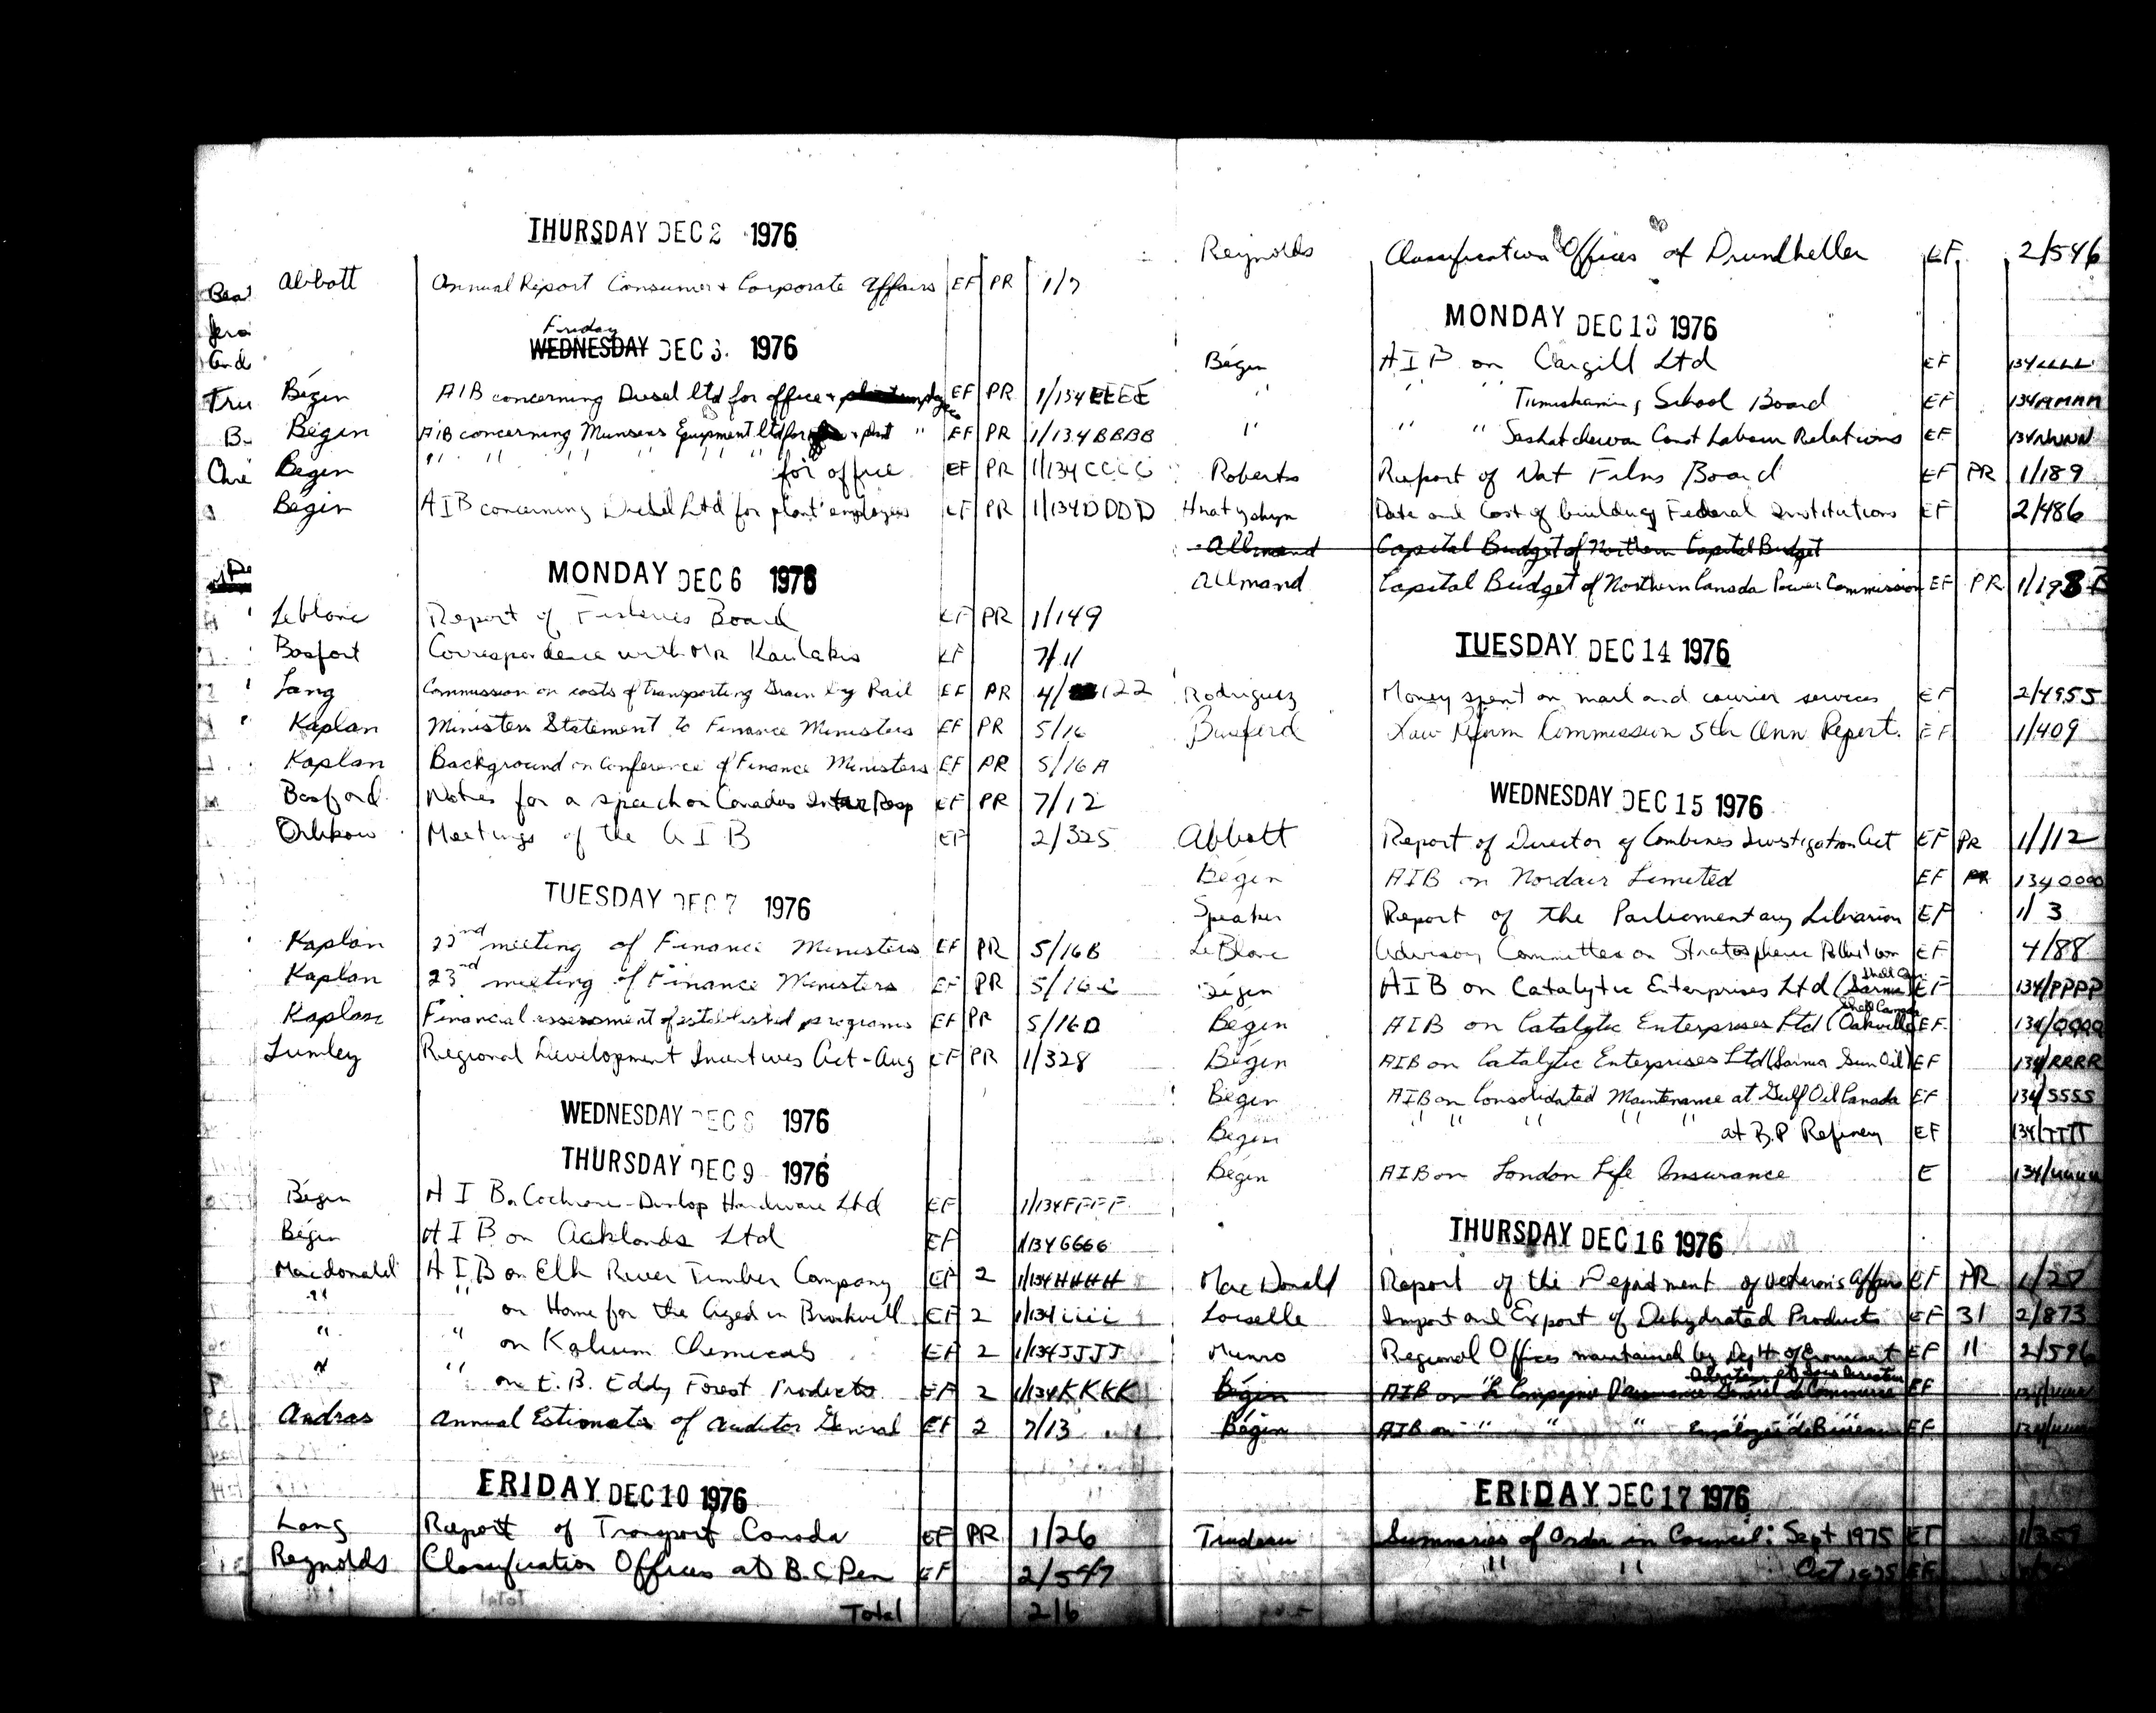 THURSDAY DEC 2 1976
Abbott Annual Report Consumer + Corporate Affairs EF PR 1/7
Friday
WEDNESDAY DEC 3. 1976
Bégin AIB concerning Diesel Ltd for office + EF PR 1/134 EEEE
Bégin AIB concerning Munsers Equipment Ltd for + plant " EF PR 1/134 BBBB
Begin " " " " " " for office EF PR 1/134 CCCC
Begin AIB concerning Diesel Ltd for plant employees EF PR 1/134 DDDD
MONDAY DEC 6 1976
Leblanc Report of Fisheries Board EF PR 1/149
Basfort Correspondence with MR Kaulakis EF 7/11
Lang Commission on costs of transporting Grain by Rail EF PR 4/122
Kaplan Ministers Statement to Finance Ministers EF PR 5/16
Kaplan Background on Conference of Finance Ministers EF PR 5/16 A
Basford Notes for a speech on Canadas EF PR 7/12
Orlikow Meetings of the A I B EF 2/325
TUESDAY DEC 7 1976
Kaplan 22nd meeting of Finance Ministers EF PR 5/16B
Kaplan 23rd meeting of Finance Ministers EF PR 5/16C
Kaplan Financial assessment of established programs EF PR 5/16D
Lumley Regional Development Incentives Act - Aug EF PR 1/328
WEDNESDAY DEC 8 1976
THURSDAY DEC 9 1976
Bégin A I B on Cochrane-Dunlop Hardware Ltd EF 1/134FFFF
Bégin A I B on Acklands Ltd EF 1/134GGGG
Macdonald A I B on Elk River Timber Company EF 2 1/134HHHH
" " on Home for the Aged in Brockvill EF 2 1/134iiii
" " on Kalium Chemicals EF 2 1/134JJJJ
" " on E.B. Eddy Forest Products EF 2 1/134KKKK
Andras Annual Estimates of Auditor General EF 2 7/13
FRIDAY DEC 10 1976
Lang Report of Transport Canada EF PR 1/26
Reynolds Classification Offices at B.C Pen EF 2/547
Total 216
Reynolds Classification Offices of Drumheller EF 2/546
MONDAY DEC 13 1976
Bégin A I B on Cargill Ltd EF 134LLLL
" " " Timiskaming School Board EF 134MMMM
" " " Saskatchewan Const Labour Relations EF 134NNNN
Roberts Report of Nat Films Board EF PR 1/189
Hnatyshyn Date and Cost of building Federal Institutions EF 2/486
Allmand Capital Budget of Northern Capital Budget
Allmand Capital Budget of Northern Canada Power Commission EF PR 1/198B
TUESDAY DEC 14 1976
Rodriguez Money spent on mail and courier services EF 2/4955
Basford Law Reform Commission 5th Ann Report. EF 1/409
WEDNESDAY DEC 15 1976
Abbott Report of Director of Combines Investigation Act EF PR 1/112
Bégin AIB on Nordair Limited EF PR 134OOOO
Speaker Report of the Parliamentary Librarian EF 1/3
LeBlanc Advisory Committee on Stratospheric Pollution EF 4/88
Bégin AIB on Catalytic Enterprises Ltd (Shell Can Sarnia) EF 134/PPPP
Bégin AIB on Catalytic Enterprises Ltd (Shell Canada Oakville) EF 134/QQQQ
Bégin AIB on Catalytic Enterprises Ltd (Sarnia Sun Oil) EF 134/RRRR
Bégin AIB on Consolidated Maintenance at Gulf Oil Canada EF 134/SSSS
Bégin " " " " " at B.P Refinery EF 134/TTTT
Bégin AIB on London Life Insurance E 134/uuuu
THURSDAY DEC 16 1976
MacDonald Report of the Depatment of Veterans Affairs EF PR 1/27
Loiselle Import and Export of Dehydrated Products EF 31 2/873
Munro Regional Offices maintained by Dept of EF 11 2/596
Bégin AIB on La Compagnie D'assurance Général de Commerce EF
Bégin AIB on " " " Employé de Bureau EF
FRIDAY DEC 17 1976
Trudeau Summaries of Order in Council: Sept 1975 EF 1/359
" " Oct 1975 EF